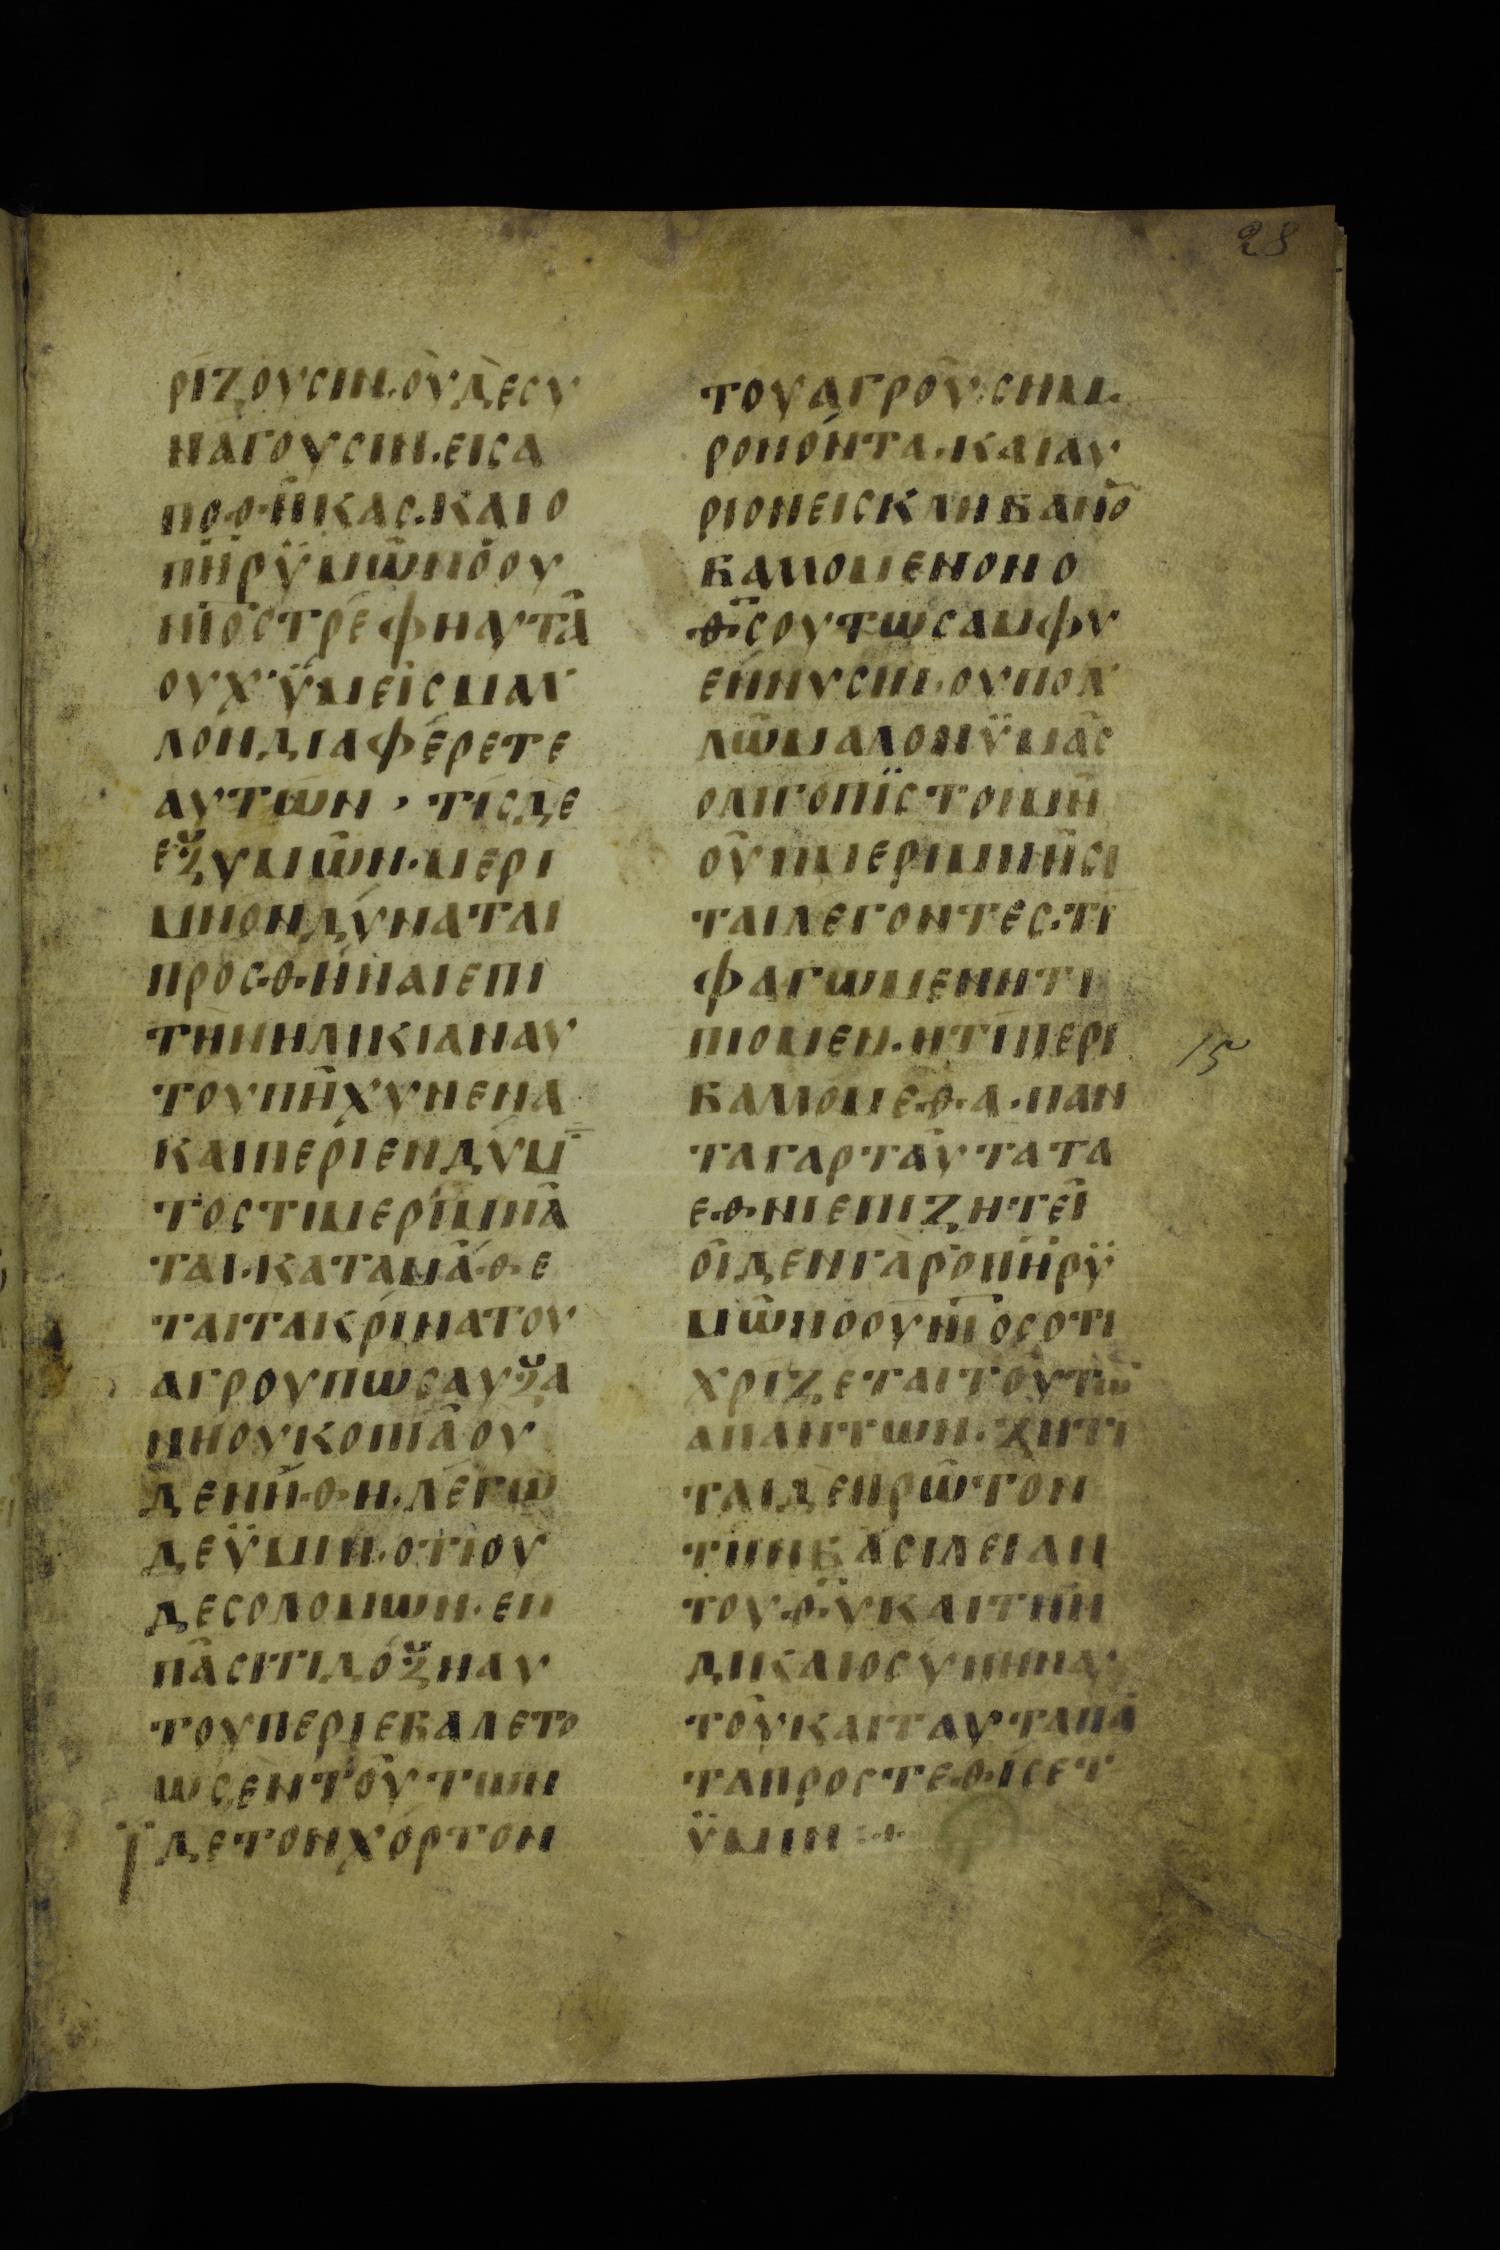 28
ρίζουσιν·οὐδὲ συ
νάγουσιν·εἰς ἀ
ποθήκας·καὶ ὁ
π̅η̅ρ ὑμῶν ὁ ου
ν̅ι̅ος τρέφη αὐτὰ
οὐχ' ὑμεῖς μαλ
λον διαφέρετε
αὐτῶν , τίς δὲ
ἐξ ὑμῶν·μερι
μνον δύναται
προσθῆναι ἐπὶ
τὴν ἡλικίαν αυ
τοῦ πῆχυν ἕνα
καὶ περὶ ἐνδύμ
τος τί μεριμνᾶ
ται·καταμάθε
ται τὰ κρίνα τοῦ
ἀγροῦ πῶς αὐξά
νη οὐ κοπιᾶ οὐ
δὲ νήθη·λέγω
δὲ ὑμῖν·ὅτι οὐ
δὲ σολομων·ἐν
πάσι τῖ δόξη αὐ
τοῦ περιεβάλετο
ὡς ἓν τούτων
ἰ δὲ τὸν χόρτον
τοῦ ἀγροῦ·σημ·
ρον ὄντα·καὶ αὔ
ριον εἰς κλήβανο̅
βαλλόμενον ὁ
θ̅ς οὕτως ἀμφυ
έννυσιν·οὐ πολ
λῶ μᾶλον ὑμᾶς
ὀλιγόπιστοι μὴ
οὖν μεριμνήσι
ται λέγοντες·τί
φάγωμεν ἢ τί
πίομεν·ἢ τί περι
15
βαλλόμεθα·παν
τα γὰρ ταῦτα τὰ
ἔθνι ἐπιζητεῖ
οἶδεν γὰρ ὁ π̅η̅ρ ὑ
μῶν ὁ οὐν̅ι̅ος ὅτι
χρίζεται τούτω̅
ἁπάντων·ζητι
ται δὲ πρῶτον
τὴν βασιλείαν
τοῦ θ̅υ καὶ τὴν
δικαιοσύνην αὐ
τοῦ καὶ ταῦτα πά̅
τα προστεθίσετ
ὑμῖν :+